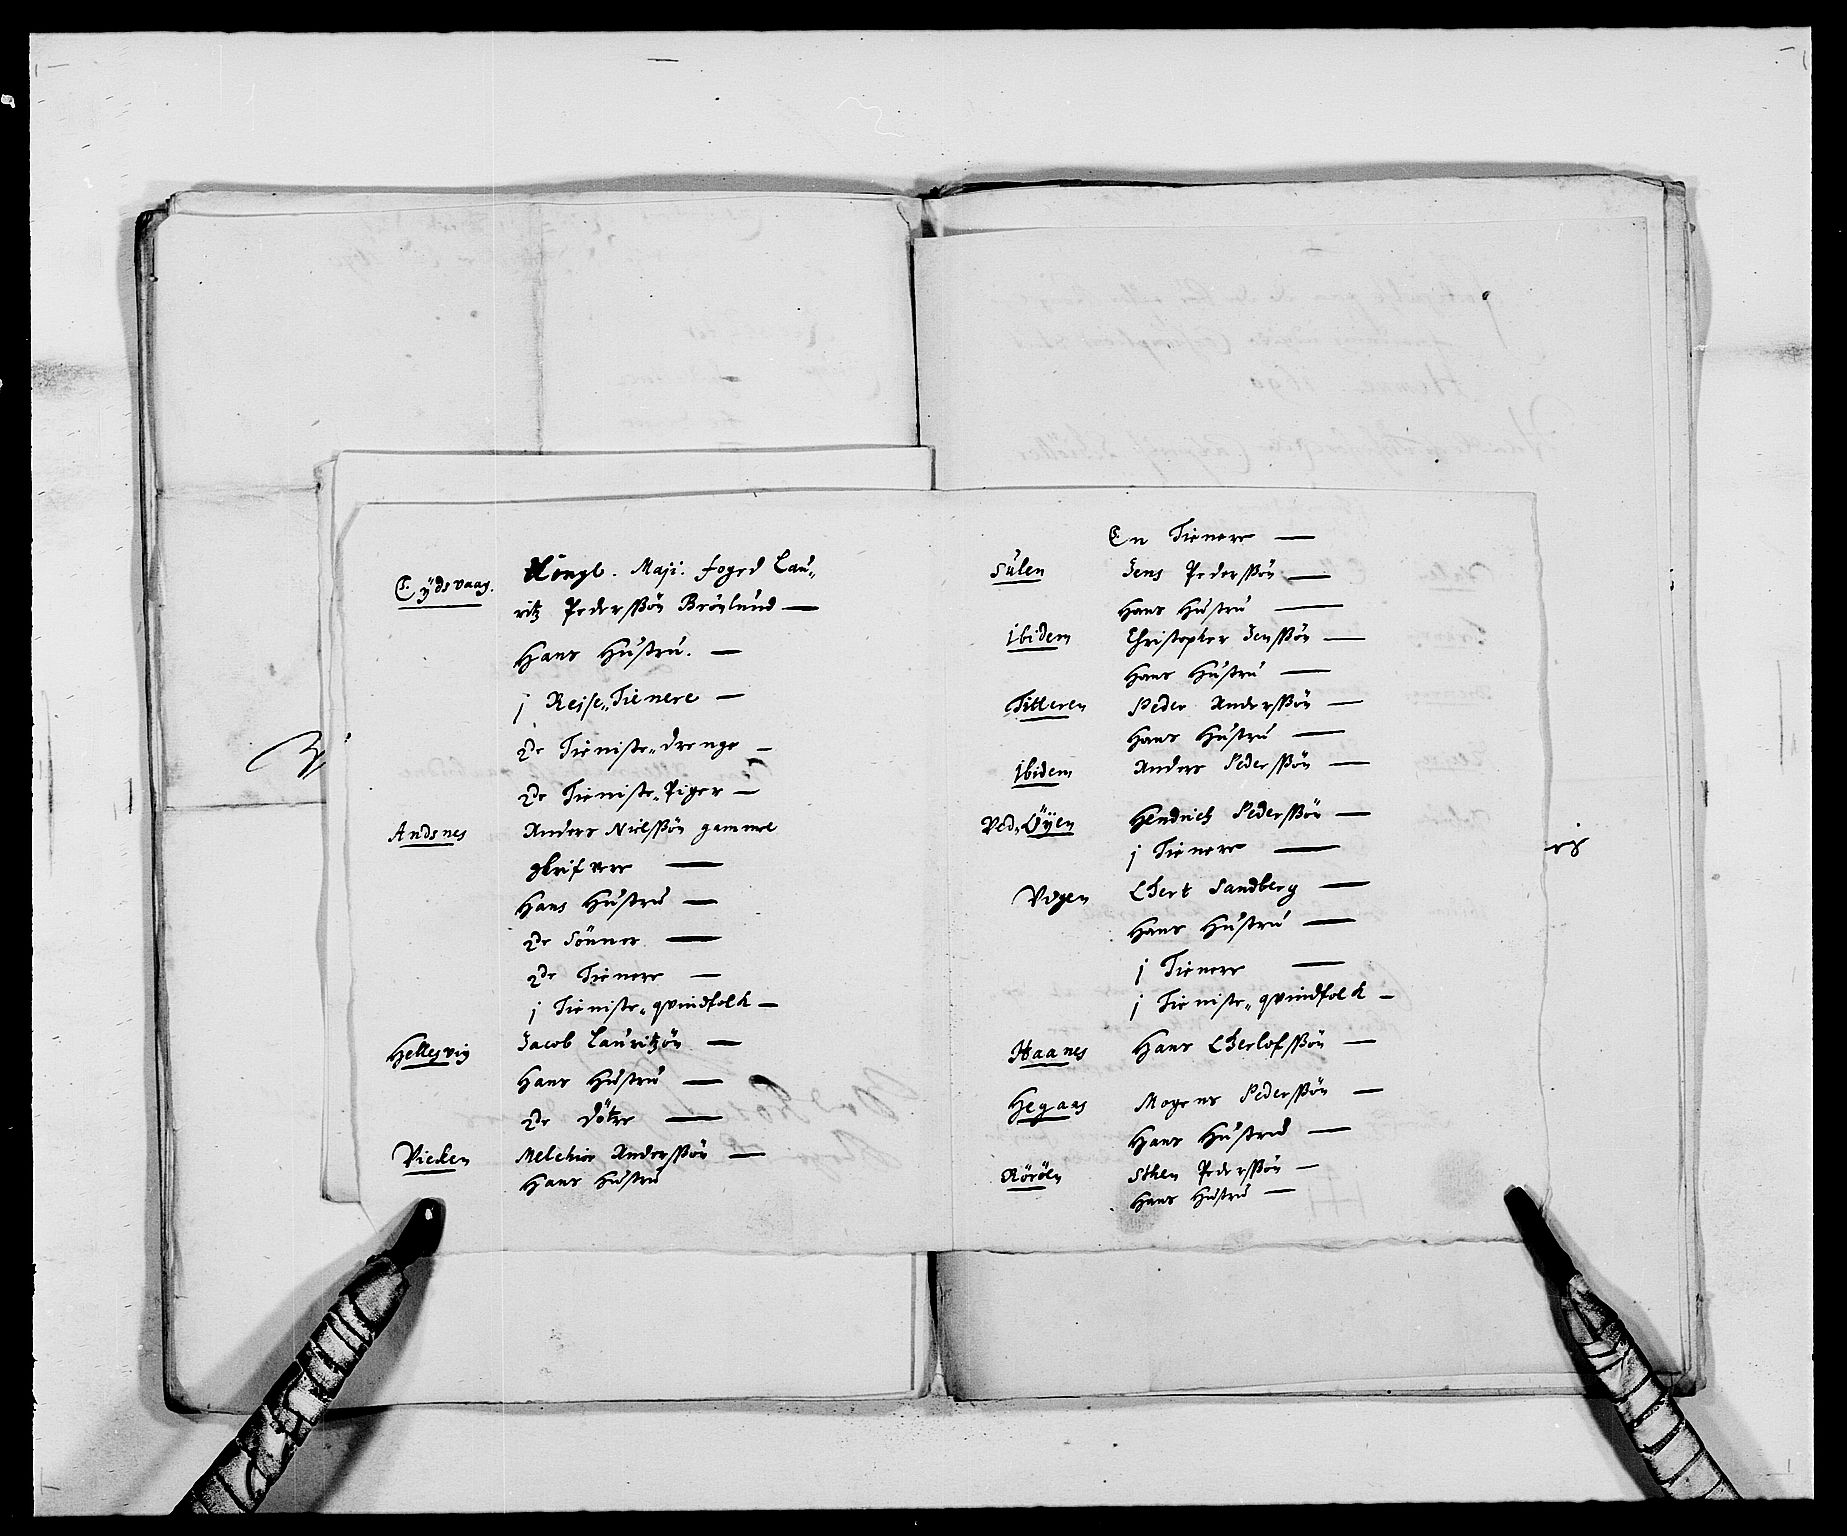 Eÿdsvaag. Kongl. Maji. foged Lau„
ritz Pederssøn Brönlund —
Hans Hustru. —
j Reise„Tienere —
2de Tieniste„drenge —
2de Tieniste„Piger —
Andsnes Anders Nielssøn gammel
skrifvere —
Hans Hustru —
2de Sönner —
2de Tienere —
j Tieniste„qvindfolk —
Hellesvig Jacob Lauritzön —
Hans Hustru —
2de Döttre —
Vieken Melchior Anderssøn —
Hans Hustru
En Tienere —
Sülen Jens Pederssøn —
Hans Hustru —
jbidem Christopher Jenssøn —
Hans Hustru —
Titteren Peder Anderssøn —
Hans Hustru —
jbidem Anders Pederssøn —
Ved„Öÿen Hendrich Pederssøn —
j Tienere —
Vogen Ebert Sandberg —
Hans Hustru —
j Tienere —
j Tieniste„qvindfolk —
Haanes Hans —
Hegaas Mogens Pederssøn —
Hans Hustrud —
Röröen Sthen Pederssøn —
Hans Hustru —